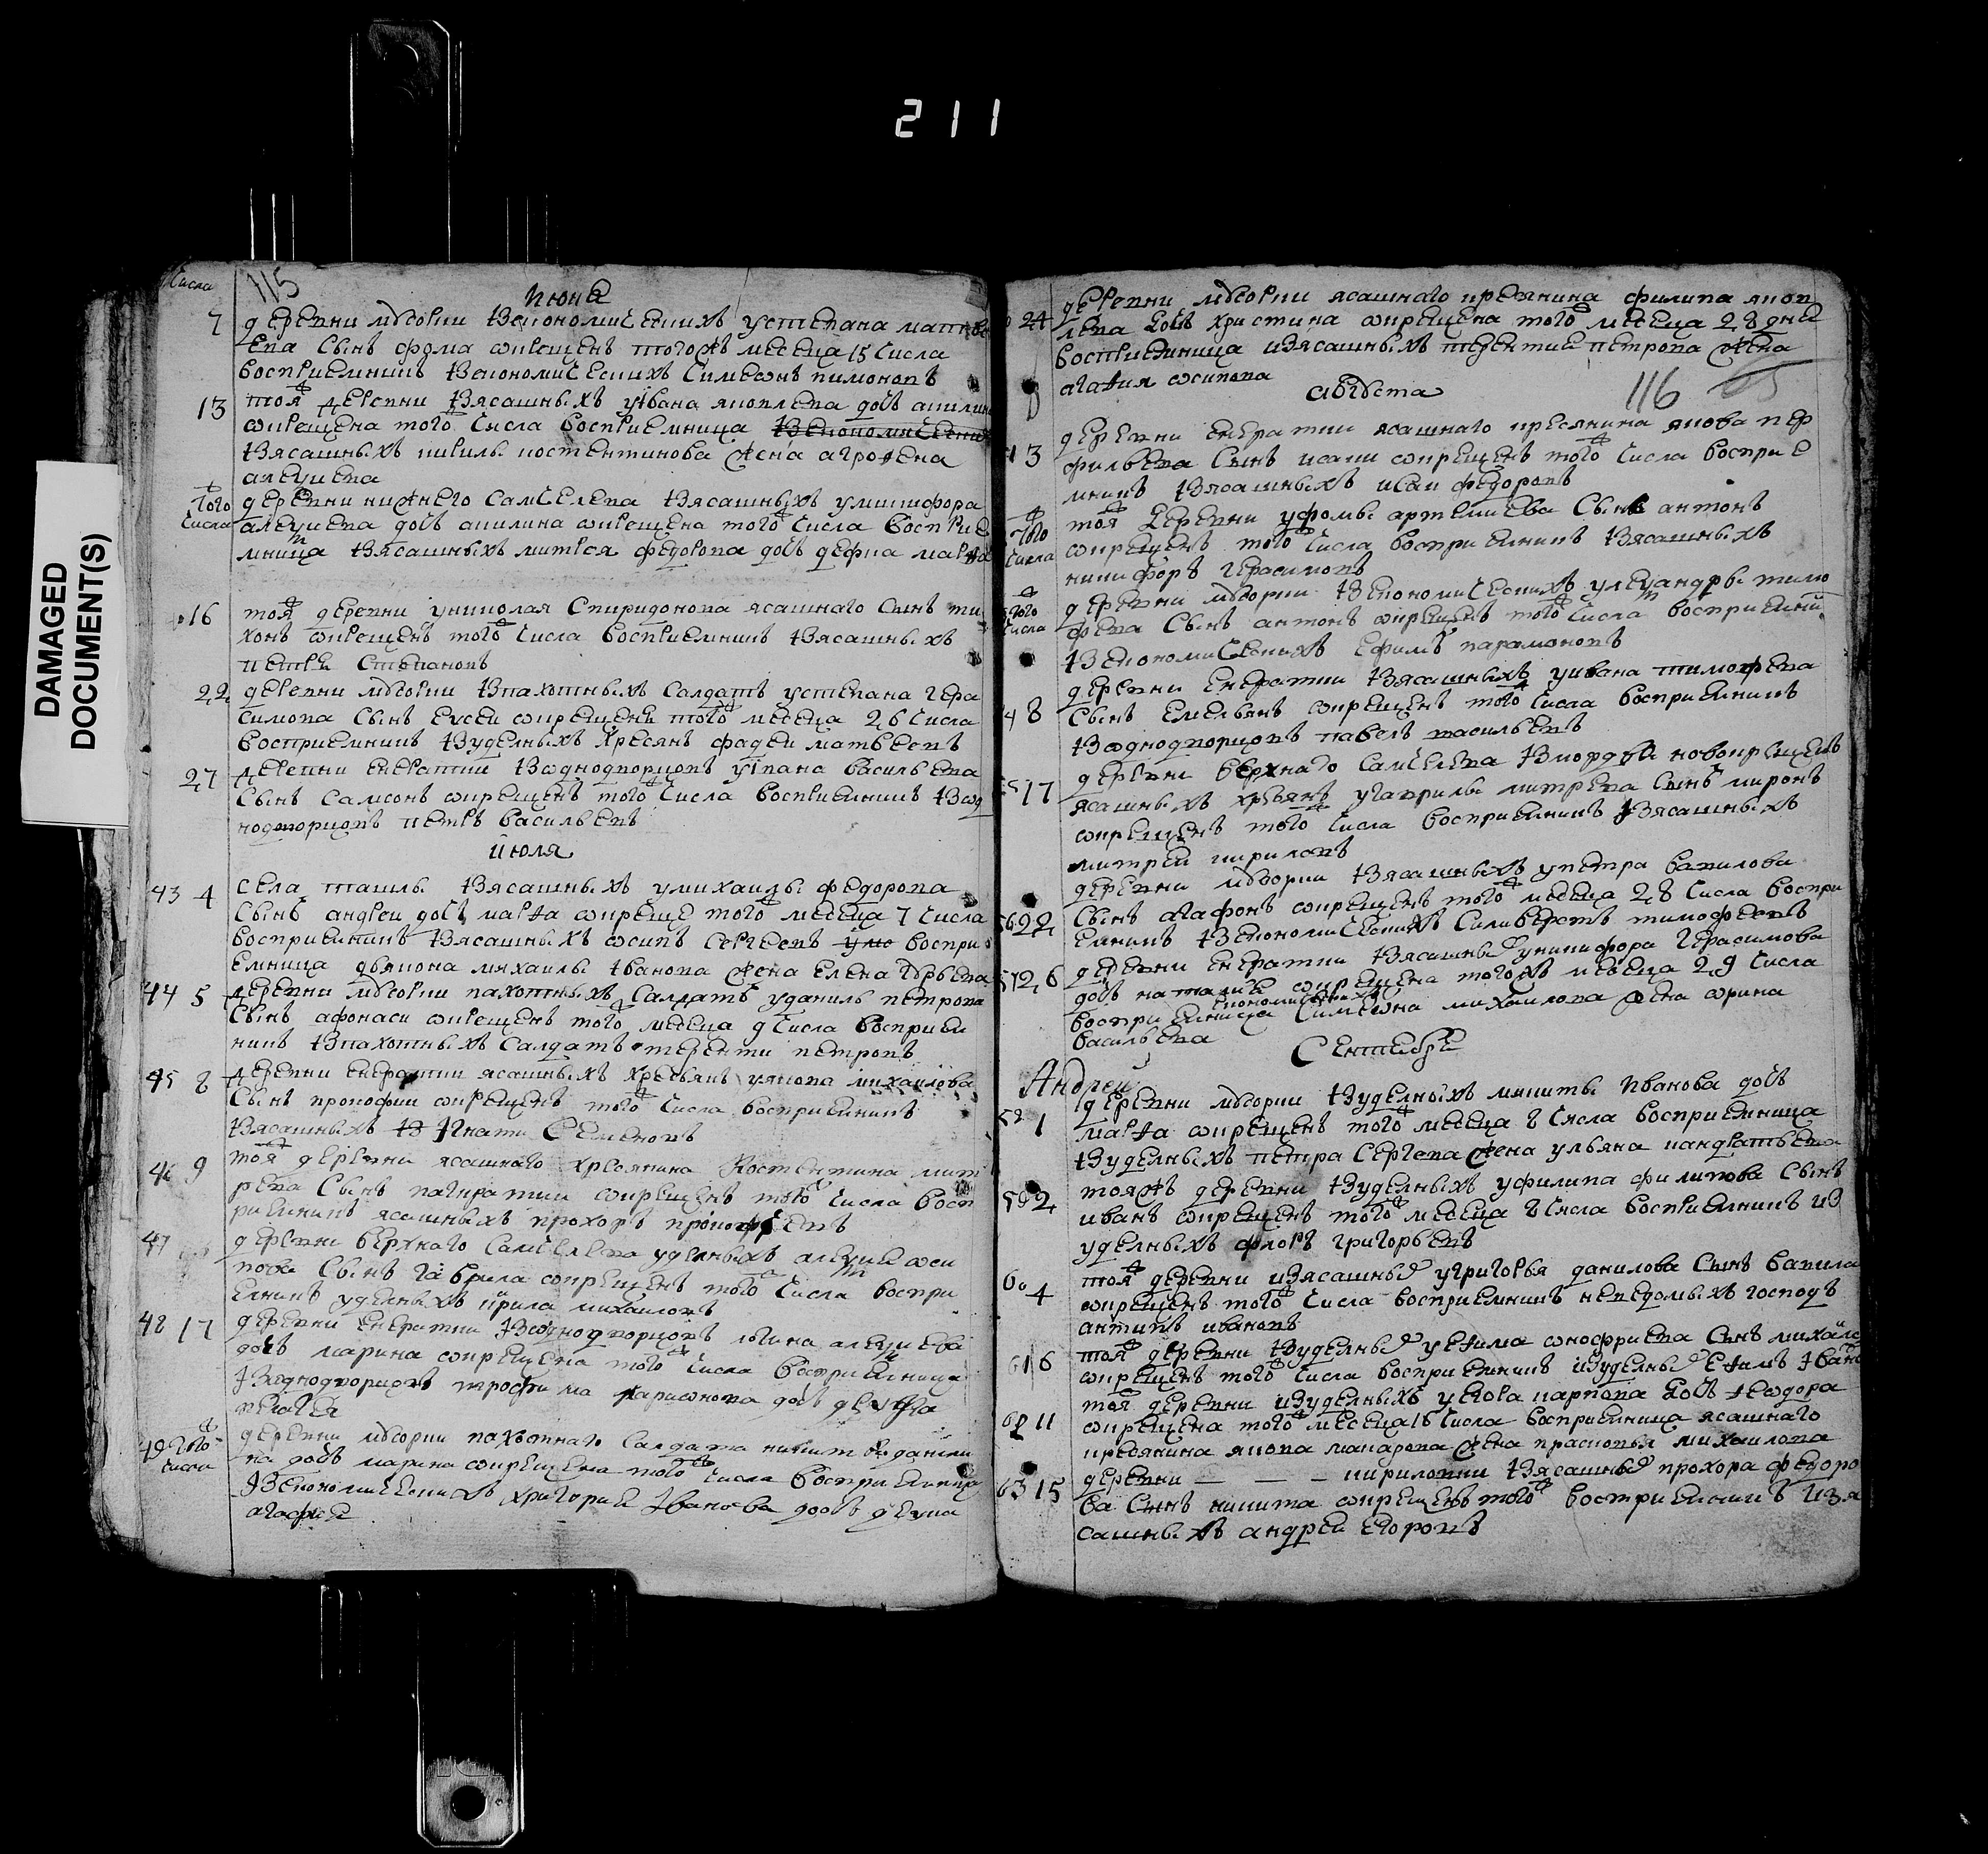 211
DAMAGED
DOCUMENT(S)
числа
115
июня
7
деревни мвсории изекономическихъ устепана матве
ева сынъ фома окрещенъ тогожъ месеца 15 числа
восприемникъ изекономическихъ симеонъ пимоновъ
13
тояж деревни изясашныхъ уивана яковлева дочь акилина
окрещена того числа восприемница
изясашныхъ костентинова жена агрофена
алексиева
того числа
деревни нижнего самселева изясашныхъ
алексиева дочь акилина окрещена того числа восприе
мница изясашныхъ митрея федорова дочь мавра
16
тояж деревни униколая спиридонова ясашнаго сынъ ти
хонъ окрещенъ того числа восприемникъ изясашныхъ
петръ степановъ
22
деревни мвсории изпахотныхъ салдатъ устепана гера
симова сынъ окрещенъ того месеца 26 числа
восприемникъ изуделныхъ хресянъ фадеи матвеевъ
27
деревни енератки изоднодворцовъ уивана васильева
сынъ самсонъ окрещенъ того числа восприемникъ изод
нодворцовъ петръ васильевъ
июля
43 4
села ташлы изясашныхъ умихаилы федорова
сынъ андреи дочь марfа окреще того месеца 7 числа
восприемникъ изясашныхъ осипъ сергеевъ воспри
емница дьякона михаилы иванова жена елена
44 5
деревни мвсории пахотныхъ салдатъ уданилы петрова
сынъ афонаси окрещенъ того месеца числа восприем
никъ изпахотныхъ салдатъ терентии петровъ
45 8
деревни енератки ясашныхъ хресьянъ уякова михаилова
сынъ прокофии окрещенъ того числа восприемникъ
изясашныхъ игнати семеновъ
46 9
тояж деревни ясашнаго хресянина костентина мит
рева сынъ панкратии окрещенъ того числа восп
риемникъ ясашныхъ прохоръ прокофьевъ
47
деревни верхнаго самселева уделныхъ алексия оси
пова сынъ гаврила окрещенъ того числа воспри
емникъ уделныхъ кирила михаиловъ
48 17
деревни енератки изоднодворцовъ алексиева
дочь марина окрещена того числа восприемница
изоднодворцовъ трофима ларионова дочь девка
пелагея
49 того числа
деревни мвсории пахотнаго салдата никиты данили
на дочь марина окрещена того числа восприемница
изекономическихъ григория иванова дочь девка
агафья
24
деревни мвсории ясашнаго кресянина филипа яков
лева дочь христина окрещена того месеца 28 дня
восприемница изясашныхъ терентия петрова жена
агафия осипова
августа
116
3
деревни енератки ясашнаго кресянина якова пер
фильева сынъ исаки окрещенъ того числа восприе
мникъ изясашныхъ исаи федоровъ
того числа
тояж деревни уфомы артемиева сынъ антонъ
окрещенъ того числа восприемникъ изясашныхъ
никифоръ герасимовъ
того числа
деревни мвсории изекономическихъ улександры тимо
феева сынъ антонъ окрещенъ того числа восприемник
изекономическихъ ефимъ парамоновъ
8
деревни енератки изясашныхъ уивана тимофеева
сынъ емельянъ окрещенъ того числа восприемникъ
изоднодворцовъ павелъ васильевъ
17
деревни верхнаго самселева измордвы новокрещенъ
ясашныхъ хресянъ угаврилы митрева сынъ миронъ
окрещенъ того числа восприемникъ изясашныхъ
митреи кириловъ
56 22
деревни мвсории изясашныхъ упетра вавилова
сынъ агафонъ окрещенъ того месеца 28 числа воспри
емникъ изекономическихъ силиверстъ тимофеевъ
57 26
деревни енератки изясашных уникифора герасимова
дочь наталия окрещена тогожъ месеца 29 числа
економическихъ
восприемница симеона михаилова жена орина
васильева
сентебря
Андрей
58 1
деревни мвсории изуделныхъ микиты иванова дочь
марfа окрещенъ того месеца 8 числа восприемница
изуделныхъ петра сергева жена ульяна кандратьева
59 2
тояжъ деревни изуделныхъ уфилипа филипова сынъ
иванъ окрещенъ того месеца 8 числа восприемникъ из
уделныхъ флоръ григорьевъ
60 4
тояж деревни изясашных угригорья данилова сынъ вавила
окрещенъ того числа восприемникъ неведомыхъ господъ
антипъ ивановъ
61 6
тояж деревни изуделных уефима онофриева сынъ михаил
окрещенъ того числа восприемникъ изуделных ефимъ иван
62 11
тояж деревни изуделныхъ уегора карпова дочь феодора
окрещена того месеца 18 числа восприемница ясашнаго
кресянина якова макарова жена прасковья михаилова
63 15
деревни — — — кириловки изясашных прохора федоро
ва сынъ никита окрещенъ того восприемникъ изя
сашныхъ андреи егоровъ